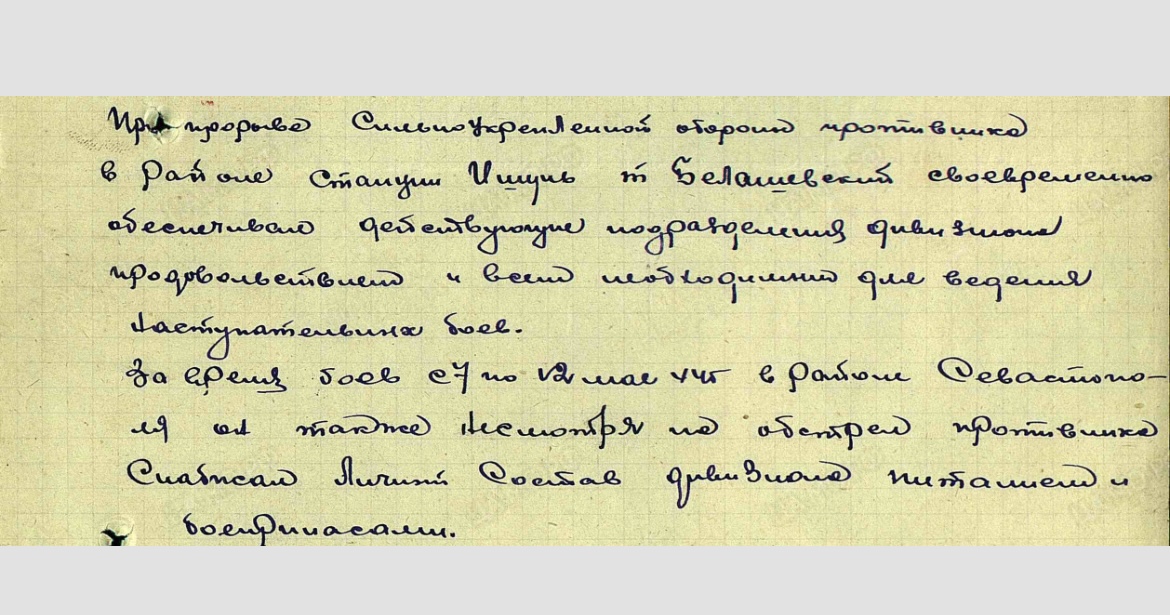 При прорыве сильно укрепленной обороны противника
в районе станции Ишунь т Белашевский своевременно
обеспечивал действующие подразделения дивизиона
продовольствием и всем необходимым для ведения
наступательных боев.
За время боев с 7 по 12 мае 44г в районе Севастопо-
ля он также несмотря на обстрел противника
Снабжал Личный Состав дивизиона питанием и
боеприпасами.